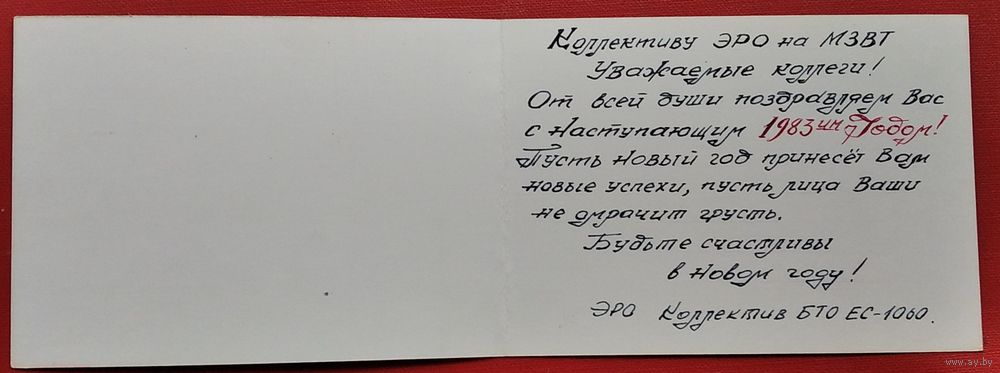 Коллективу ЭРО на МЗВТ
Уважаемые коллеги!
От всей души поздравляем Вас
с наступающим 1983им Годом!
Пусть новый год принесёт Вам
новые успехи, пусть лица Ваши
не омрачит грусть.
Будьте счастливы
в новом году!
ЭРО Коллектив БТО ЕС-1060.
www.ay.by